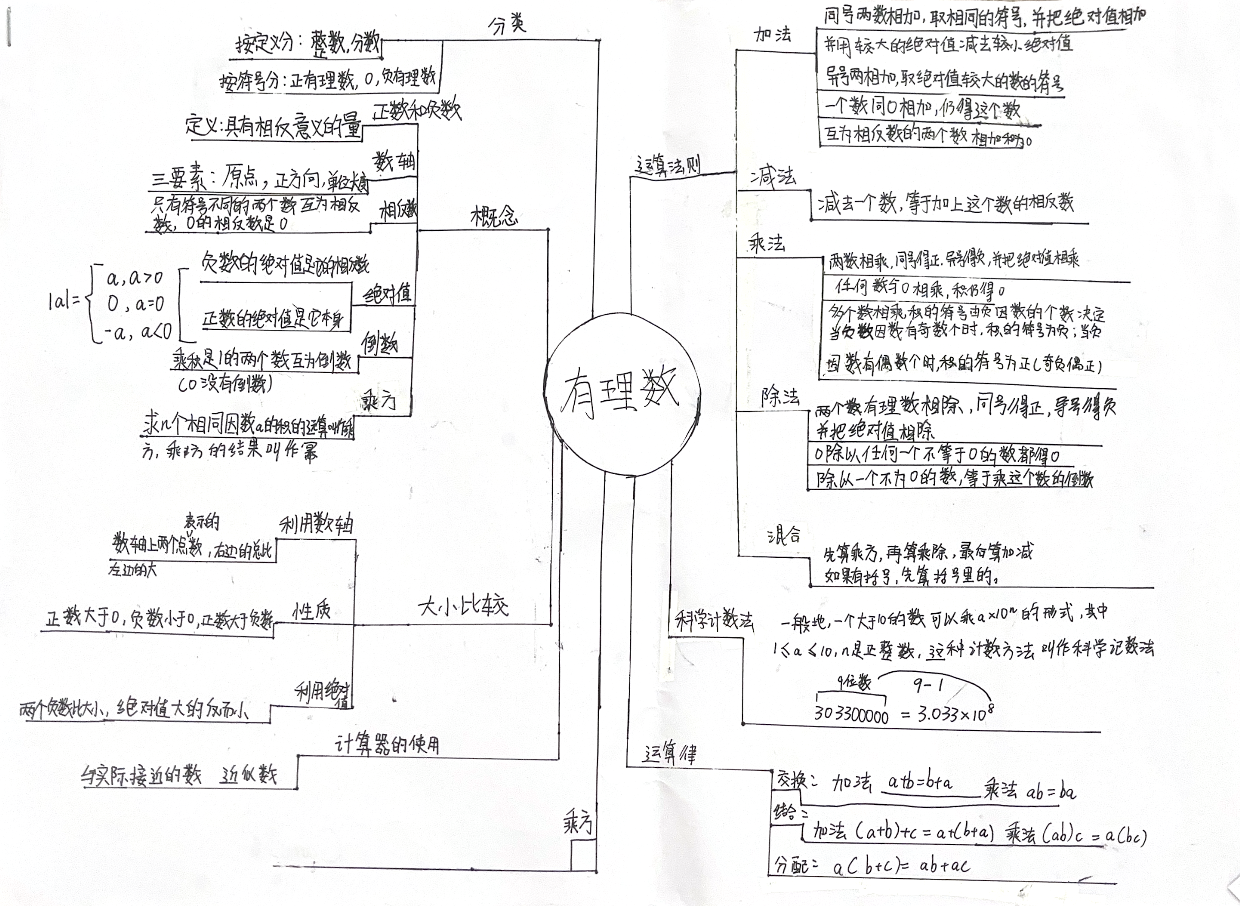 有理数
分类
按定义分：整数,分数
按符号分：正有理数, 0, 负有理数
概念
正数和负数
定义:具有相反意义的量
数轴
三要素：原点，正方向,单位长度
相反数
只有符号不同的两个数互为相反
数，0的相反数是0
绝对值
负数的绝对值是它的相反数
正数的绝对值是它本身
|a|=
a, a>0
0, a=0
-a, a<0
倒数
乘积是1的两个数互为倒数
(0没有倒数)
乘方
求n个相同因数a的积的运算叫作乘
方，乘方的结果叫作幂
大小比较
利用数轴
表示的
数轴上两个点数，右边的总比
左边的大
性质
正数大于0,负数小于0,正数大于负数
利用绝对值
两个负数比大小，绝对值大的反而小
计算器的使用
与实际接近的数 近似数
乘方
运算法则
加法
同号两数相加，取相同的符号，并把绝对值相加
并用较大的绝对值减去较小绝对值
异号两相加,取绝对值较大的数的符号
一个数同0相加,仍得这个数
互为相反数的两个数相加和为0
减法
减去一个数，等于加上这个数的相反数
乘法
两数相乘,同号得正.异号得负,并把绝对值相乘
任何数与0相乘，积仍得0
多个数相乘,积的符号由负因数的个数决定
当负数因数有奇数个时，积的符号为负；当负
因数有偶数个时,积的符号为正(奇负偶正)
除法
两个数有理数相除，同号得正，异号得负
并把绝对值相除
0除以任何一个不等于0的数都得0
除以一个不为0的数，等于乘这个数的倒数
混合
先算乘方，再算乘除，最后算加减
如果有括号,先算括号里的。
科学计数法
一般地,一个大于10的数可以乘a×10ⁿ的形式,其中
1≤a≤10,n是正整数，这种计数方法叫作科学记数法
9位数 9-1
303300000 = 3.033×10⁸
运算律
交换： 加法 a+b=b+a 乘法 ab=ba
结合：
加法 (a+b)+c=a+(b+a) 乘法(ab)c=a(bc)
分配： a(b+c)=ab+ac